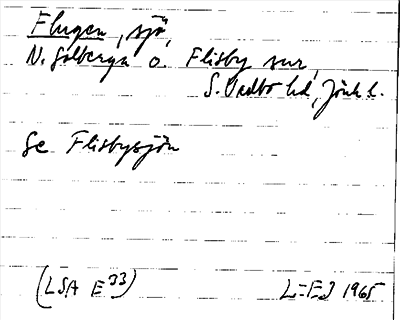 Flugen, sjö,
N. Solberga o. Flisby snr,
S. Vedbo hd, Jönk. l.
Se Flisbysjön
(LSA E 33)
L-E-J 1965